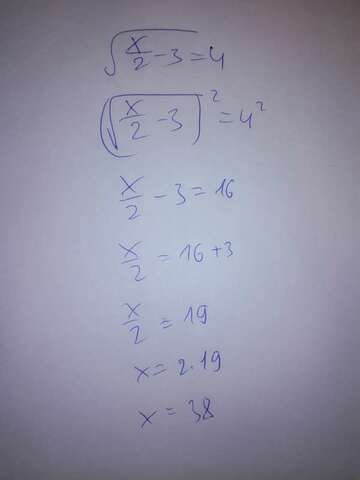 √(x/2 - 3) = 4
(√(x/2 - 3))² = 4²
x/2 - 3 = 16
x/2 = 16 + 3
x/2 = 19
x = 2 · 19
x = 38